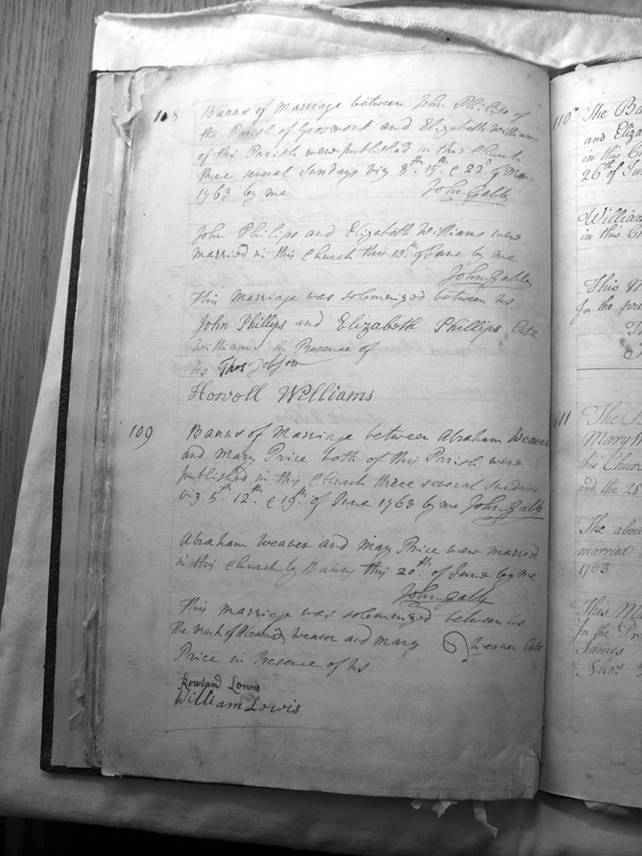 108 Banns of Marriage between John Philips of
the Parish of Grosmont and Elizabeth Williams
of this Parish were published in this Church
three several Sundays viz 8th. 15th. & 22d. of May
1763 by me John Gabb
John Philips and Elizabeth Williams were
married in this Church this 13th of June by me
John Gabb
This Marriage was solemnized between us
John Phillips and Elizabeth Phillips, late
Williams in Presence of
Us Thos Jobson
Howoll Williams
109 Banns of Marriage between Abraham Weaver
and Mary Price both of this Parish were
published in this Church three several Sundays
viz. 5th. 12th. & 19th. of June 1763 by me John Gabb
Abraham Weaver and Mary Price were married
in this Church by Banns this 20th. of June by me
John Gabb
This marriage was solemnized between us
The mark of Abraham Weaver and Mary Weaver late
Price in Presence of Us
Rowland Lewis
William Lewis
110 The Ba
and Eliza
in this C
26th of Ju
William
in this C
This M
In the pre
111 The
Mary
this Church
and the 25
The above
married
1763
This Ma
In the Pre
James
Thos.